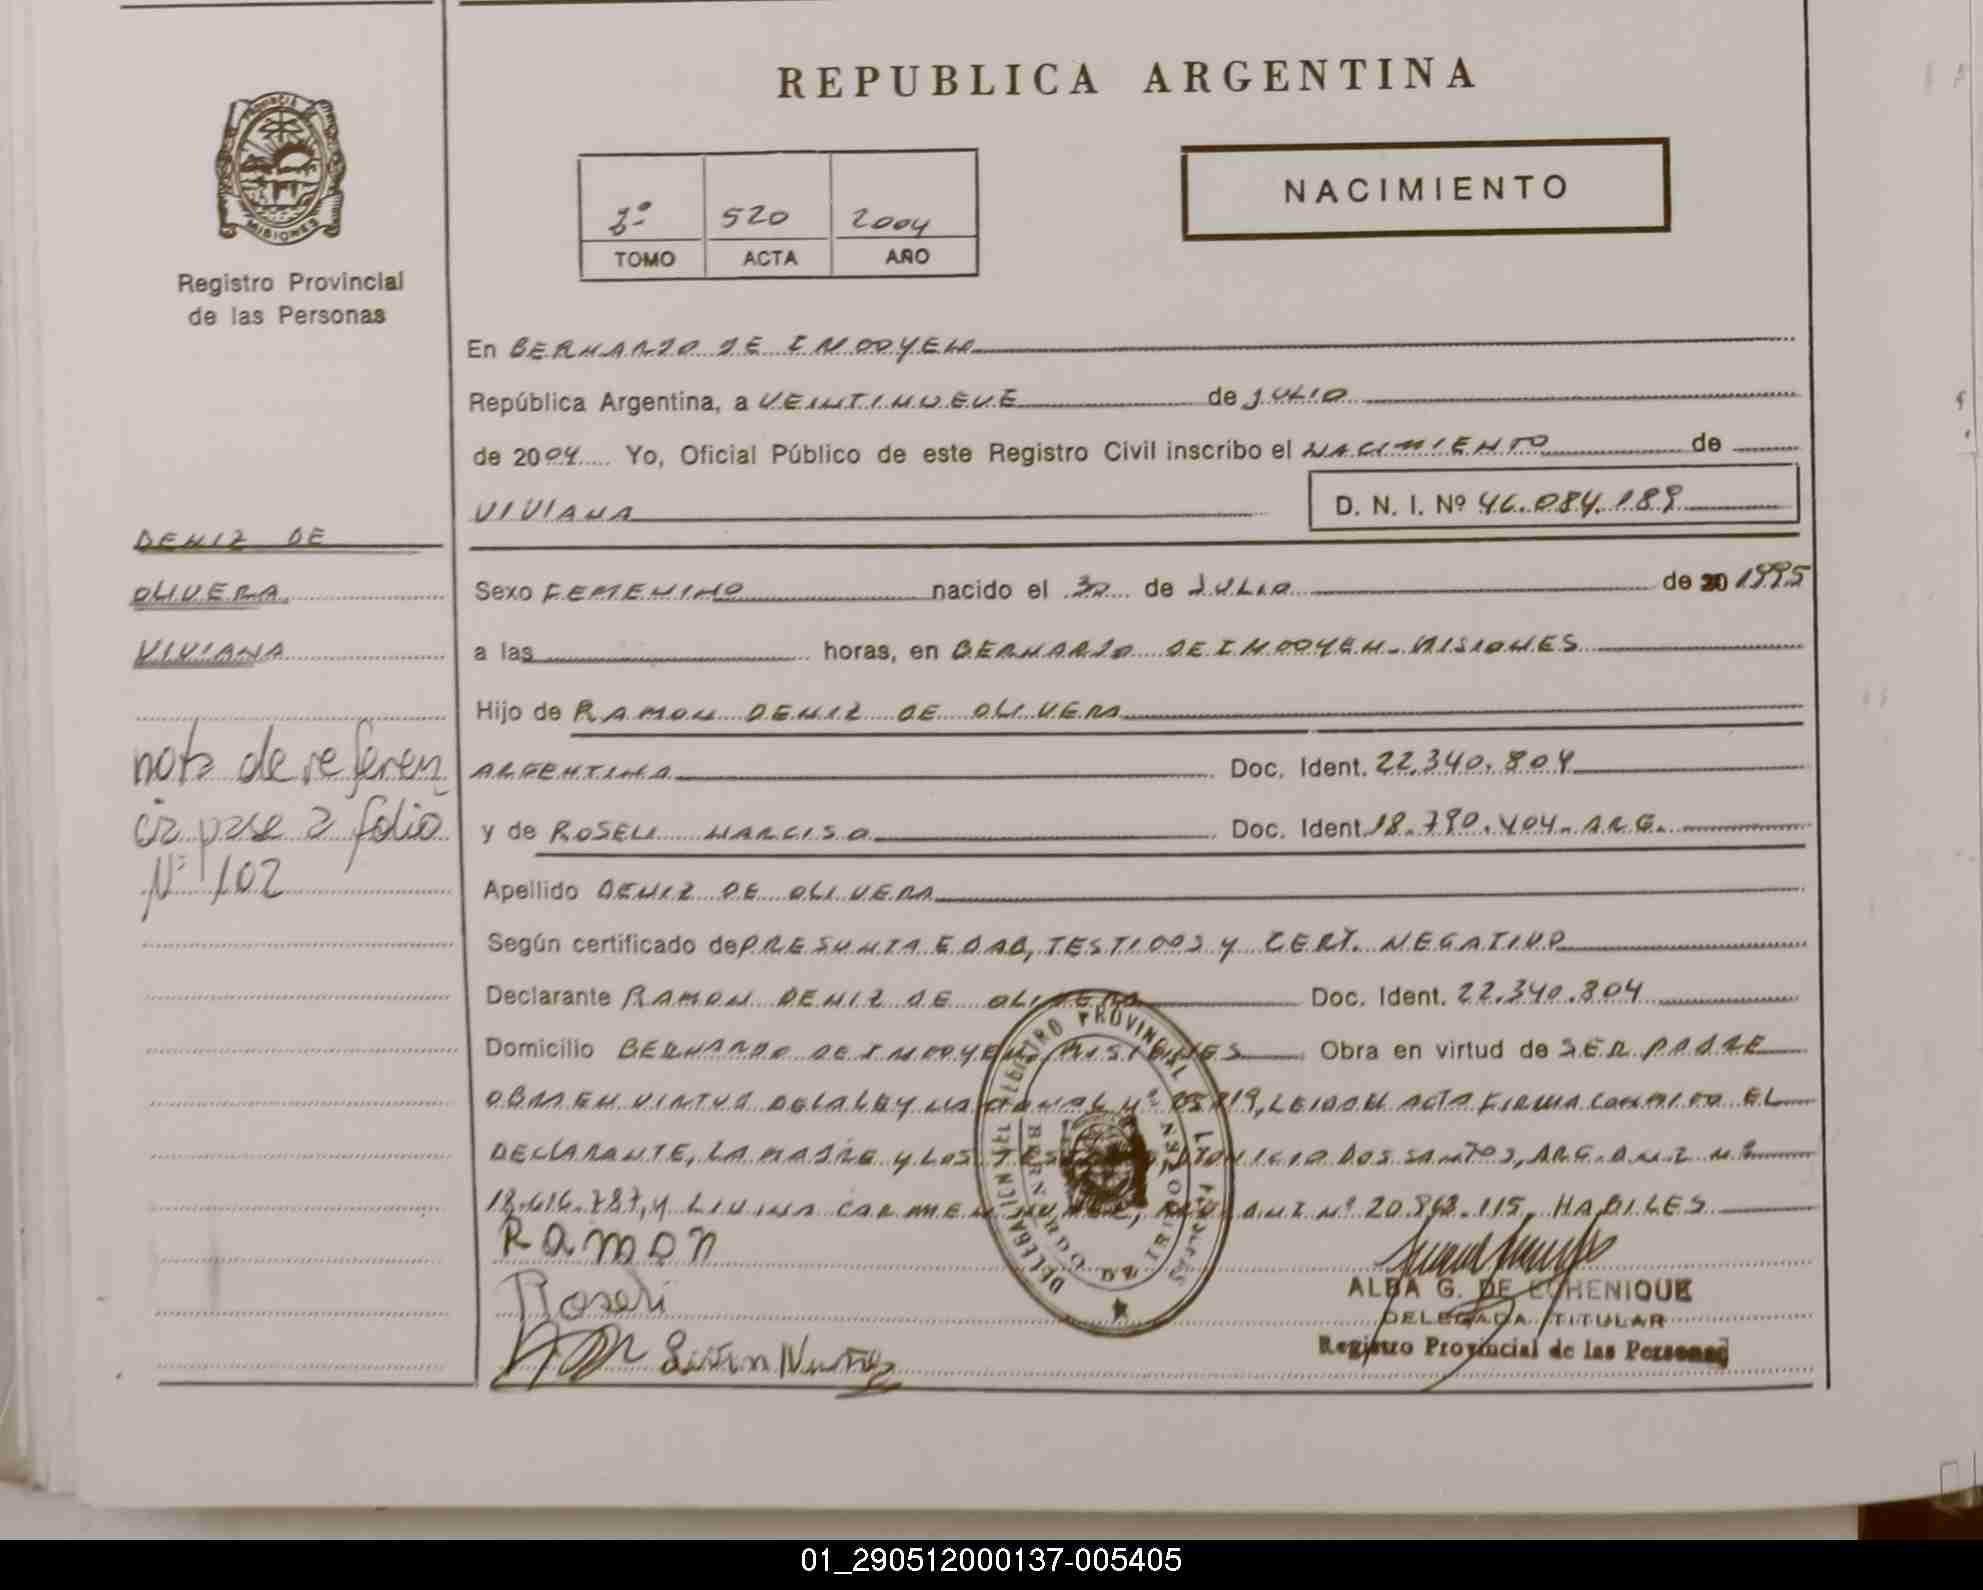 REPUBLICA ARGENTINA
PROVINCIA
MISIONES
Registro Provincial
de las Personas
3º 520 2004
TOMO ACTA AÑO
NACIMIENTO
En BERNARDO DE IRIGOYEN
República Argentina, a VEINTINUEVE de JULIO
de 2004 Yo, Oficial Público de este Registro Civil inscribo el NACIMIENTO de
VIVIANA D. N. I. Nº 46.084.189
DENIZ DE
OLIVERA
VIVIANA
Sexo FEMENINO nacido el 30 de JULIO de 20 1995
a las horas, en BERNARDO DE IRIGOYEN - MISIONES
Hijo de RAMON DENIZ DE OLIVERA
ARGENTINA Doc. Ident. 22.340.804
y de ROSELI NARCISO Doc. Ident. 18.790.404 - ARG.
nota de referen
cia pase a folio
Nº 102
Apellido DENIZ DE OLIVERA
Según certificado de PRESUNTA EDAD, TESTIGOS y CERT. NEGATIVO
Declarante RAMON DENIZ DE OLIVERA Doc. Ident. 22.340.804
Domicilio BERNARDO DE IRIGOYEN, MISIONES Obra en virtud de SER PADRE
OBRA EN VIRTUD DE LA LEY NACIONAL Nº 25819, LEIDO EL ACTA FIRMA CONMIGO EL
DECLARANTE, LA MADRE y LOS TESTIGOS DOS SANTOS, ARG. D.N.I. Nº
18.616.787, y LIVINA CARMEN NUÑEZ, D.N.I. Nº 20.868.115, HABILES
Ramon
Roseli
Nuñez
DELEGACION DEL REGISTRO PROVINCIAL DE LAS PERSONAS
BERNARDO DE IRIGOYEN
ALBA G. DE ECHENIQUE
DELEGADA TITULAR
Registro Provincial de las Personas
01_290512000137-005405